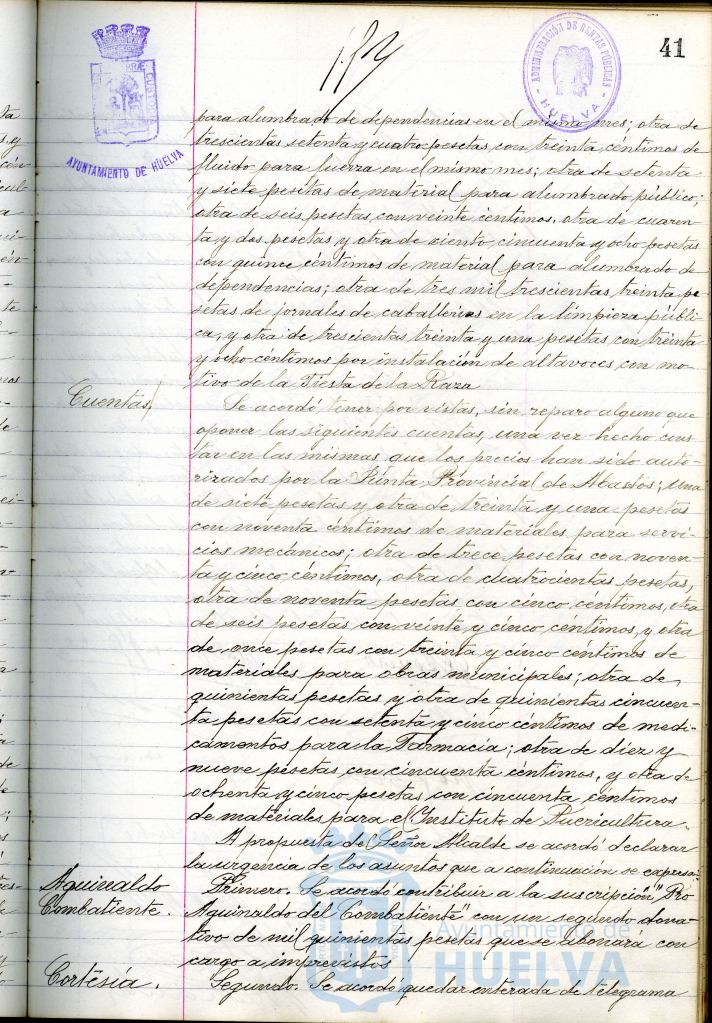 41
AYUNTAMIENTO DE HUELVA
ADMINISTRACIÓN DE RENTAS PÚBLICAS
HUELVA
para alumbrado de dependencias en el mismo mes; otra de
trescientas setenta y cuatro pesetas con treinta céntimos de
fluido para fuerza en el mismo mes; otra de setenta
y siete pesetas de material para alumbrado público;
otra de seis pesetas con veinte céntimos, otra de cuaren-
ta y dos pesetas y otra de ciento cincuenta y ocho pesetas
con quince céntimos de material para alumbrado de
dependencias; otra de tres mil trescientas treinta pe-
setas de jornales de caballerías en la limpieza públi-
ca, y otra de trescientas treinta y una pesetas con treinta
y ocho céntimos por instalación de altavoces con mo-
tivo de la Fiesta de la Raza
Cuentas
Se acordó tener por vistas, sin reparo alguno que
oponer las siguientes cuentas, una vez hecho cons-
tar en las mismas que los precios han sido auto-
rizados por la Junta Provincial de Abastos; una
de siete pesetas y otra de treinta y una pesetas
con noventa céntimos de materiales para servi-
cios mecánicos; otra de trece pesetas con noven-
ta y cinco céntimos, otra de cuatrocientas pesetas,
otra de noventa pesetas con cinco céntimos, otra
de seis pesetas con veinte y cinco céntimos, y otra
de once pesetas con treinta y cinco céntimos de
materiales para obras municipales; otra de
quinientas pesetas y otra de quinientas cincuen-
ta pesetas con setenta y cinco céntimos de medi-
camentos para la Farmacia; otra de diez y
nueve pesetas con cincuenta céntimos, y otra de
ochenta y cinco pesetas con cincuenta céntimos
de materiales para el Instituto de Puericultura.
A propuesta del Señor Alcalde se acordó declarar
la urgencia de los asuntos que a continuación se expresa:
Aguinaldo
Combatiente.
Primero. Se acordó contribuir a la suscripción "Pro
Aguinaldo del Combatiente" con un segundo dona-
tivo de mil quinientas pesetas que se abonará con
cargo a imprevistos
Cortesía.
Segundo. Se acordó quedar enterada de telegrama
Ayuntamiento de
HUELVA